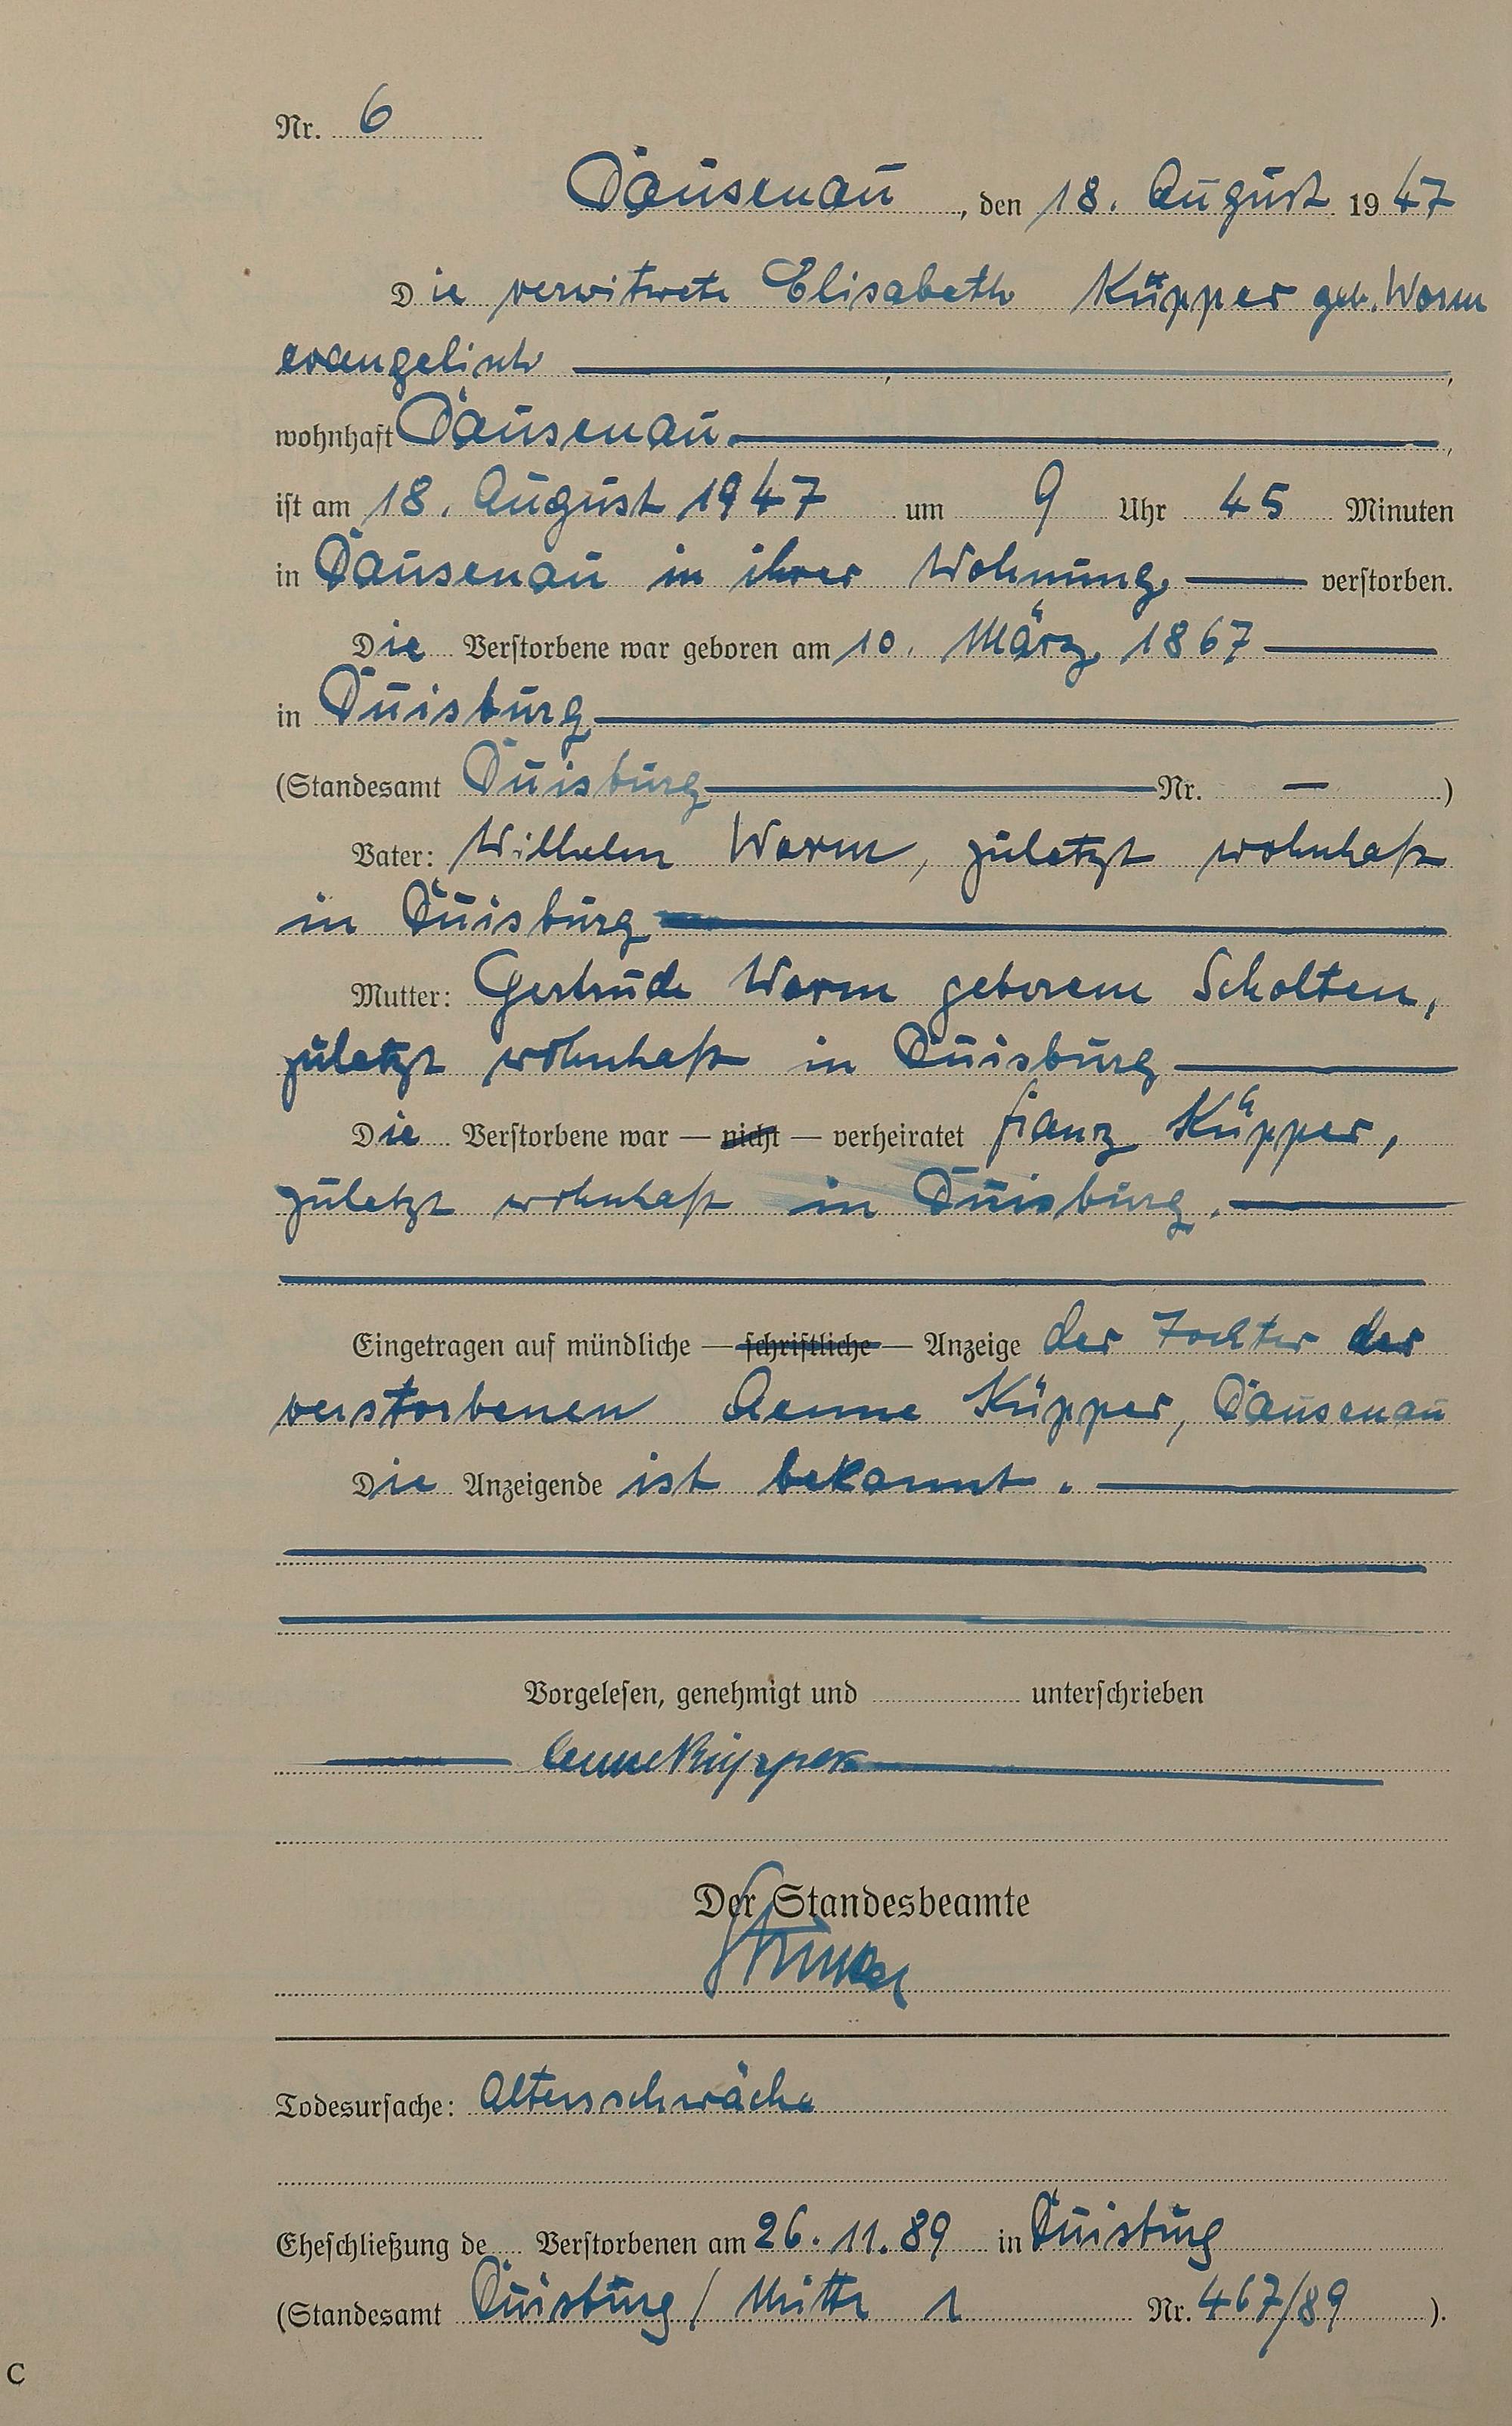 Nr. 6
Dausenau, den 18. August 1947
Die verwitwete Elisabeth Küpper geb. Worm
evangelisch
wohnhaft Dausenau,
ist am 18. August 1947 um 9 Uhr 45 Minuten
in Dausenau in ihrer Wohnung verstorben.
Die Verstorbene war geboren am 10. März 1867
in Duisburg
(Standesamt Duisburg Nr. — )
Vater: Wilhelm Worm, zuletzt wohnhaft
in Duisburg
Mutter: Gertrude Worm geborene Scholten,
zuletzt wohnhaft in Duisburg
Die Verstorbene war — nicht — verheiratet Franz Küpper,
zuletzt wohnhaft in Duisburg.
Eingetragen auf mündliche — schriftliche — Anzeige der Tochter der
verstorbenen Aenne Küpper, Dausenau
Die Anzeigende ist bekannt.
Vorgelesen, genehmigt und unterschrieben
Aenne Küpper
Der Standesbeamte
Todesursache: Altersschwäche
Eheschließung de Verstorbenen am 26.11.89 in Duisburg
(Standesamt Duisburg / Mitte 1 Nr. 467/89 ).
C